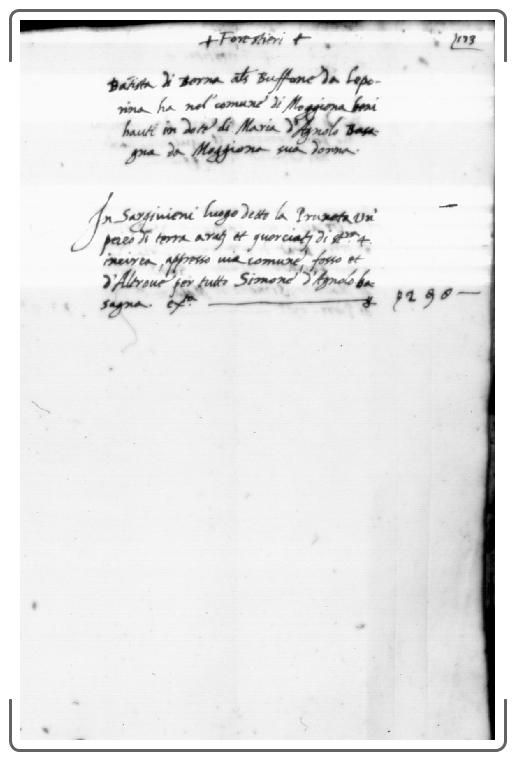 + Forestieri + 173
Batista di Berna als Buffone da Lepo-
rina ha nel comune di Moggiona beni
hauti in dote di Maria d'Agnolo Basa-
gna da Moggiona sua donna.
In Sargivieni luogo detto la Pruneta un'
pezo di terra et di
incirca, appresso via comune, fosso et
d'Altrove per tutto Simone d'Agnolo ba-
sagna.